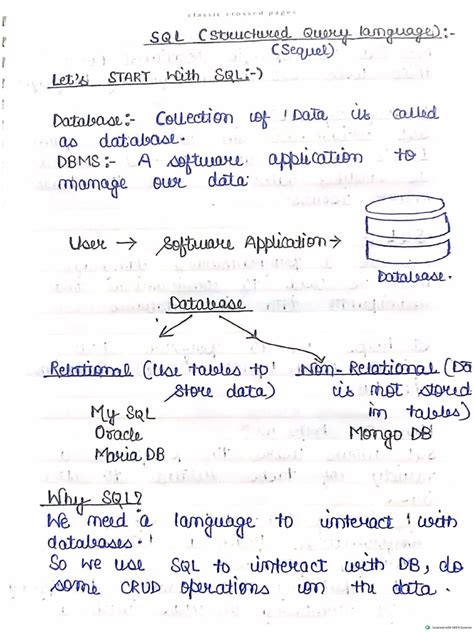 classic crossed pages
SQL (Structured Query language):-
(Sequel)
Let's START with SQL:-)
Database:- Collection of Data is called
as database.
DBMS:- A software application to
manage our data.
User → Software Application →
Database.
Database
Relational (Use tables to Non-Relational (Da
store data) is not stored
in tables)
My SQL
Oracle Mongo DB
Maria DB
Why SQL?
We need a language to interact with
databases.
So we use SQL to interact with DB, do
some CRUD operations on the data.
Scanned with OKEN Scanner